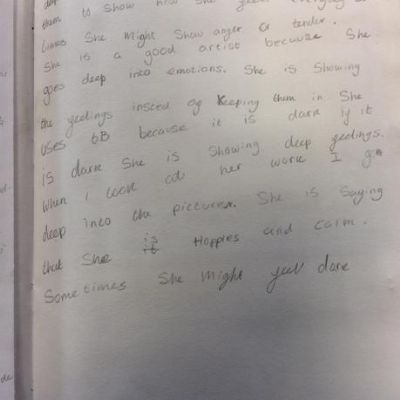 them to show how she
times She Might Show anger or tender.
She is a good artist because She
goes deep into emotions. She is Showing
the feelings insted of keeping them in She
uses 6B because it is dark if it
is dark She is Showing deep feelings.
When I look at her work I go
deep into the pictures. She is Saying
that She is Hoppies and calm.
Sometimes She Might feel dare